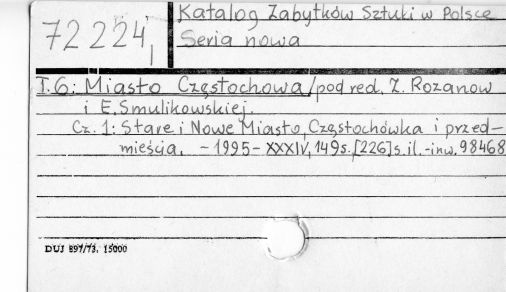 72224,
Katalog Zabytków Sztuki w Polsce
Seria nowa
T.6: Miasto Częstochowa/pod red. Z. Rozanow
i E. Smulikowskiej.
Cz. 1: Stare i Nowe Miasto, Częstochówka i przed-
mieścia. - 1995 - XXXIV, 149 s. [226] s. il. - inw. 98468
DUJ 897/73. 15000